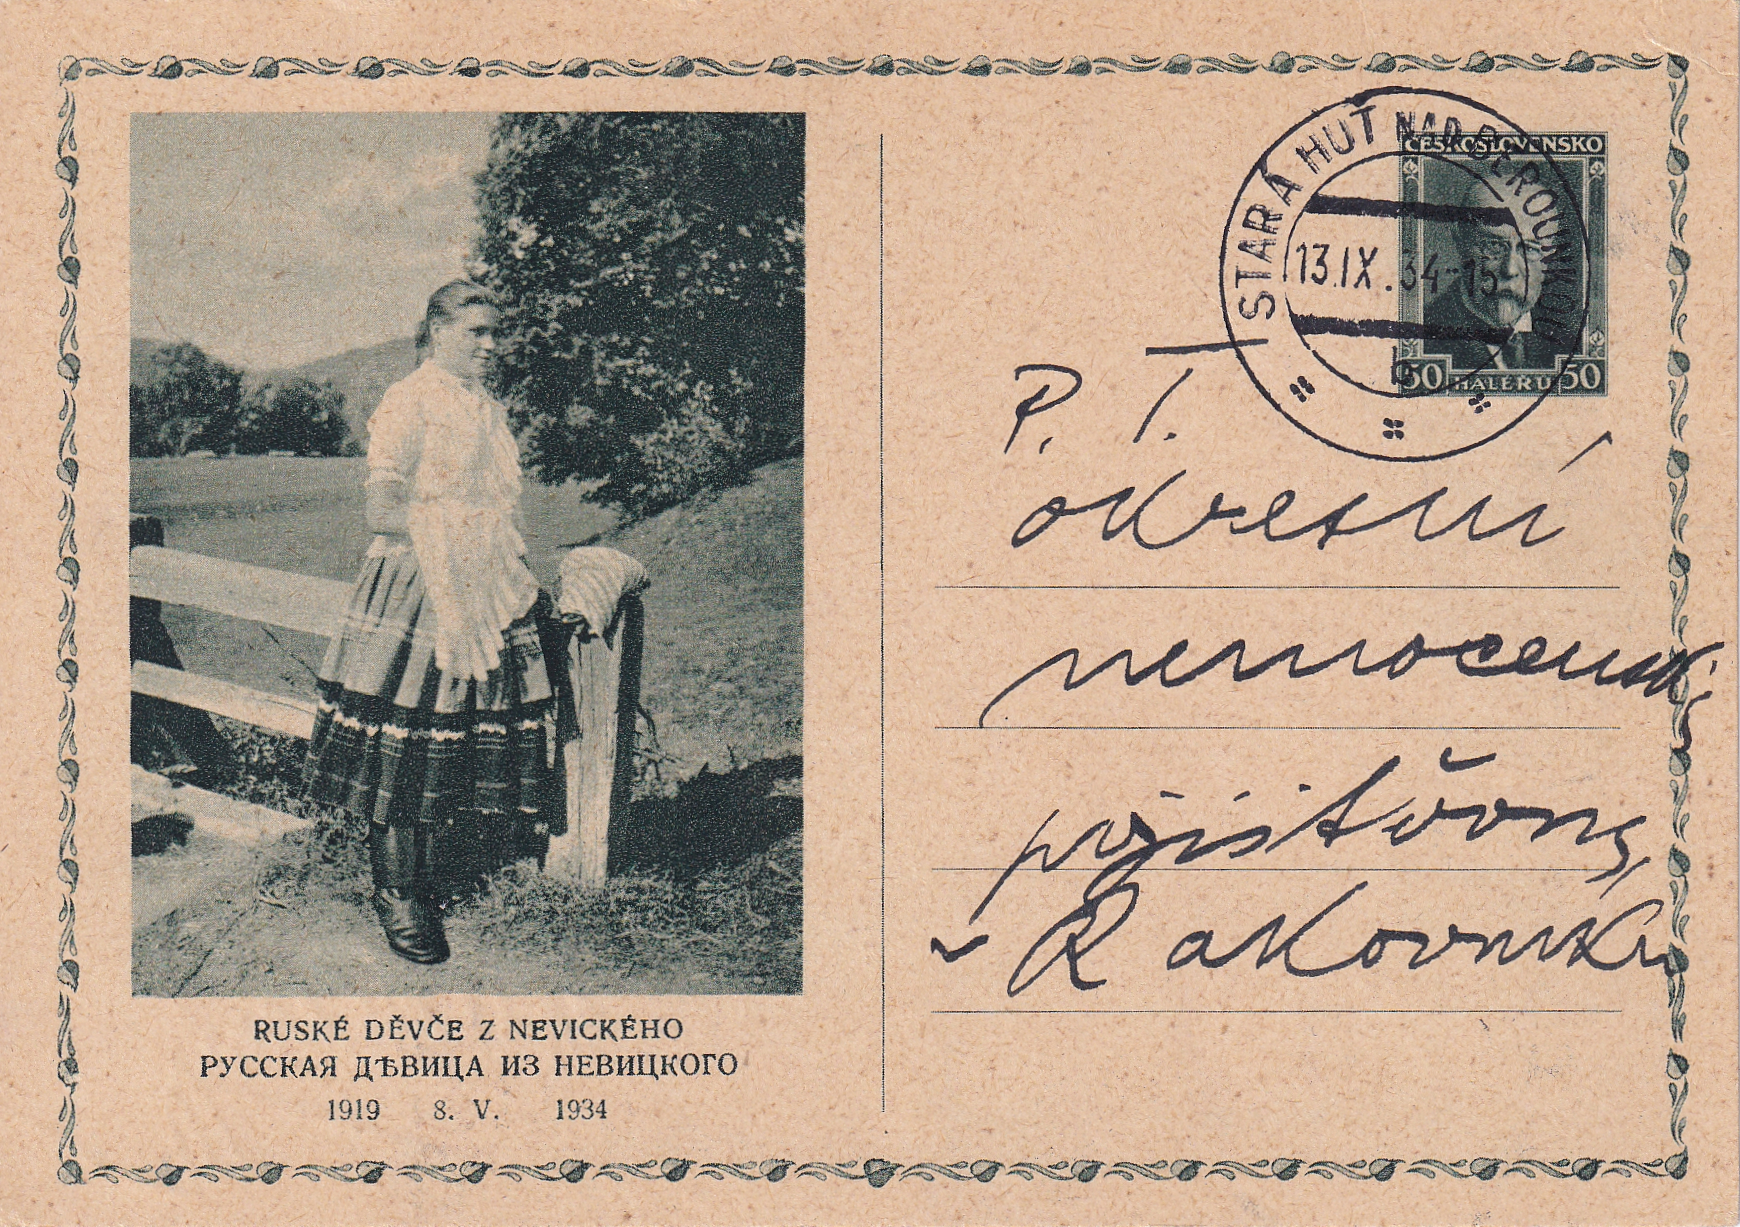 RUSKÉ DĚVČE Z NEVICKÉHO
РУССКАЯ ДѢВИЦА ИЗ НЕВИЦКОГО
1919 8. V. 1934
STARÁ HUŤ NAD BEROUNKOU
13.IX.34-15
b
ČESKOSLOVENSKO
50 HALÉŘŮ 50
P. T.
okresní
nemocenské
pojišťovně
v Rakovníku